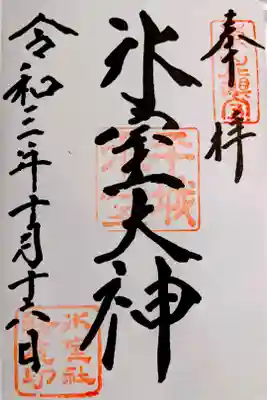 奉拝
氷室大神
令和三年十月十六日
平城
氷室社